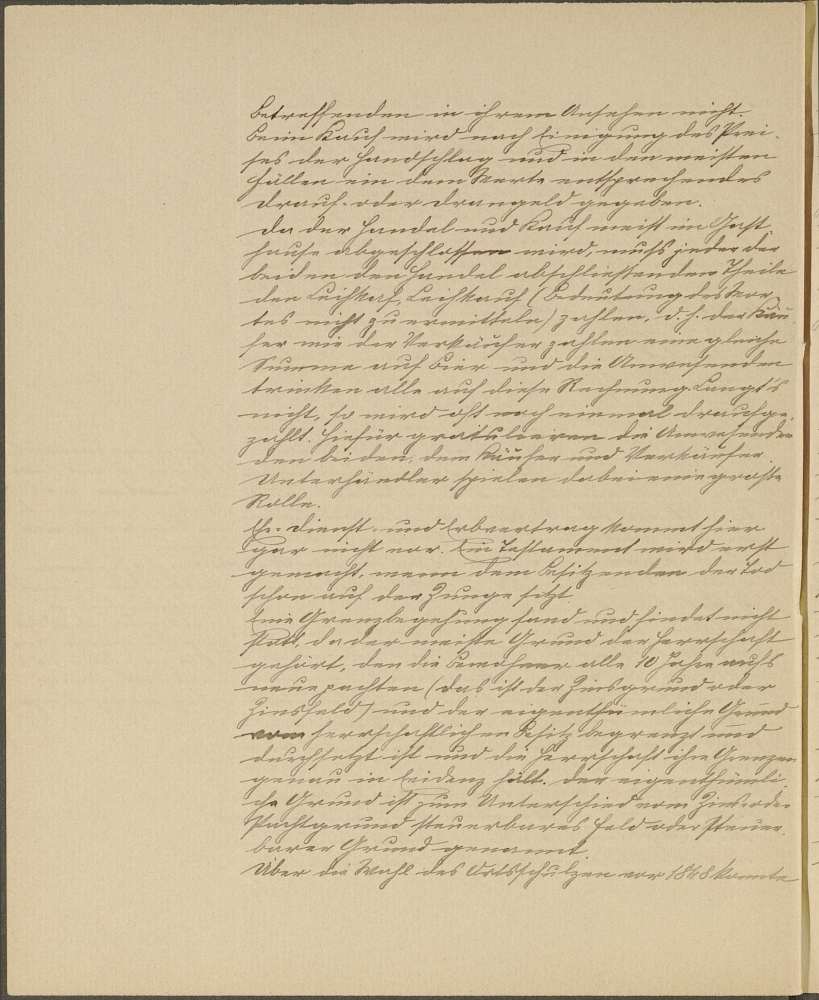 Betreffenden in ihrem Ansehen nicht.
Beim Kauf wird nach Einigung des Prei-
ses der Handschlag und in den meisten
Fällen ein dem Werte entsprechendes
Drauf- oder Drangeld gegeben.
Da der Handel und Kauf meist im Gast-
hause abgeschlossen wird, muß jeder der
beiden den Handel abschließenden Theile
den Leihkaf, Leihkauf (Bedeutung des Wor-
tes nicht zu ermitteln) zahlen, d. h. der Käu-
fer wie der Verkäufer zahlen eine gleiche
Summe auf Bier und die Anwesenden
trinken alle auf diese Rechnung. Langt's
nicht, so wird oft noch einmal draufge-
zahlt. Hiefür gratulieren die Anwesenden
den beiden, dem Käufer und Verkäufer.
Unterhändler spielen dabei eine große
Rolle.
Ehe- Dienst- und Erbvertrag kommt hier
gar nicht vor. Ein Testament wird erst
gemacht, wenn dem Besitzenden der Tod
schon auf der Zunge sitzt.
Eine Grenzbegehung fand und findet nicht
statt, da der meiste Grund der Herrschaft
gehört, den die Bewohner alle 10 Jahre aufs
neue pachten (das ist der Zinsgrund oder
Zinsfeld) und der eigenthümliche Grund
vom herrschaftlichen Besitz begrenzt und
durchsetzt ist und die Herrschaft ihre Grenzen
genau in Evidenz hält. Der eigenthümli-
che Grund ist zum Unterschied vom Zins- oder
Pachtgrund steuerbares Feld oder steuer-
barer Grund genannt.
Über die Wahl des Ortsschulzen vor 1848 konnte